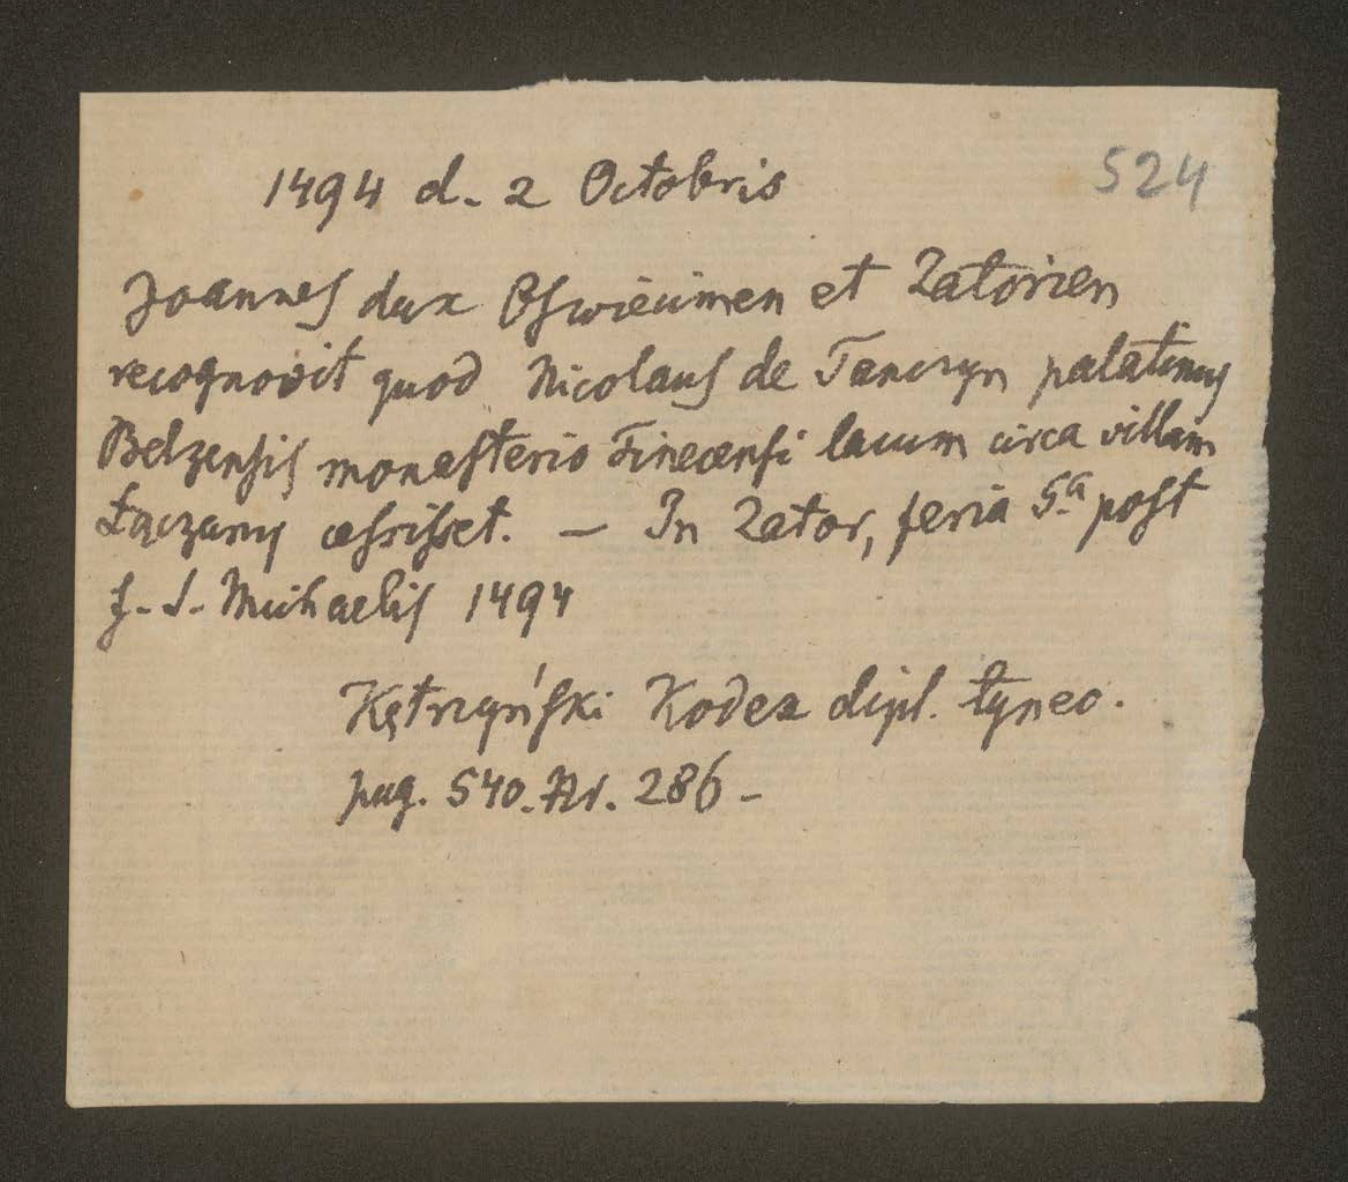 1494 d. 2 Octobris 524
Joannes dux Oswiecimen et Zatorien
recognovit quod Nicolaus de Tanczyn palatinus
Belzensis monasterio Tinecensi lacum circa villam
Łączany cessisset. — In Zator, feria 5.a post
f. S. Michaelis 1494
Kętrzyński Kodex dipl. tynec.
pag. 540. Nr. 286 -